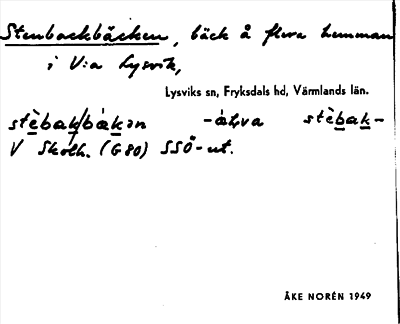 Stenbackbäcken, bäck å flera hemman
i V:a Lysvik,
Lysviks sn, Fryksdals hd, Värmlands län.
stèbak/bàkən -àḷva stèbak-
V Skolh. (G80) SSÖ-ut.
ÅKE NORÉN 1949